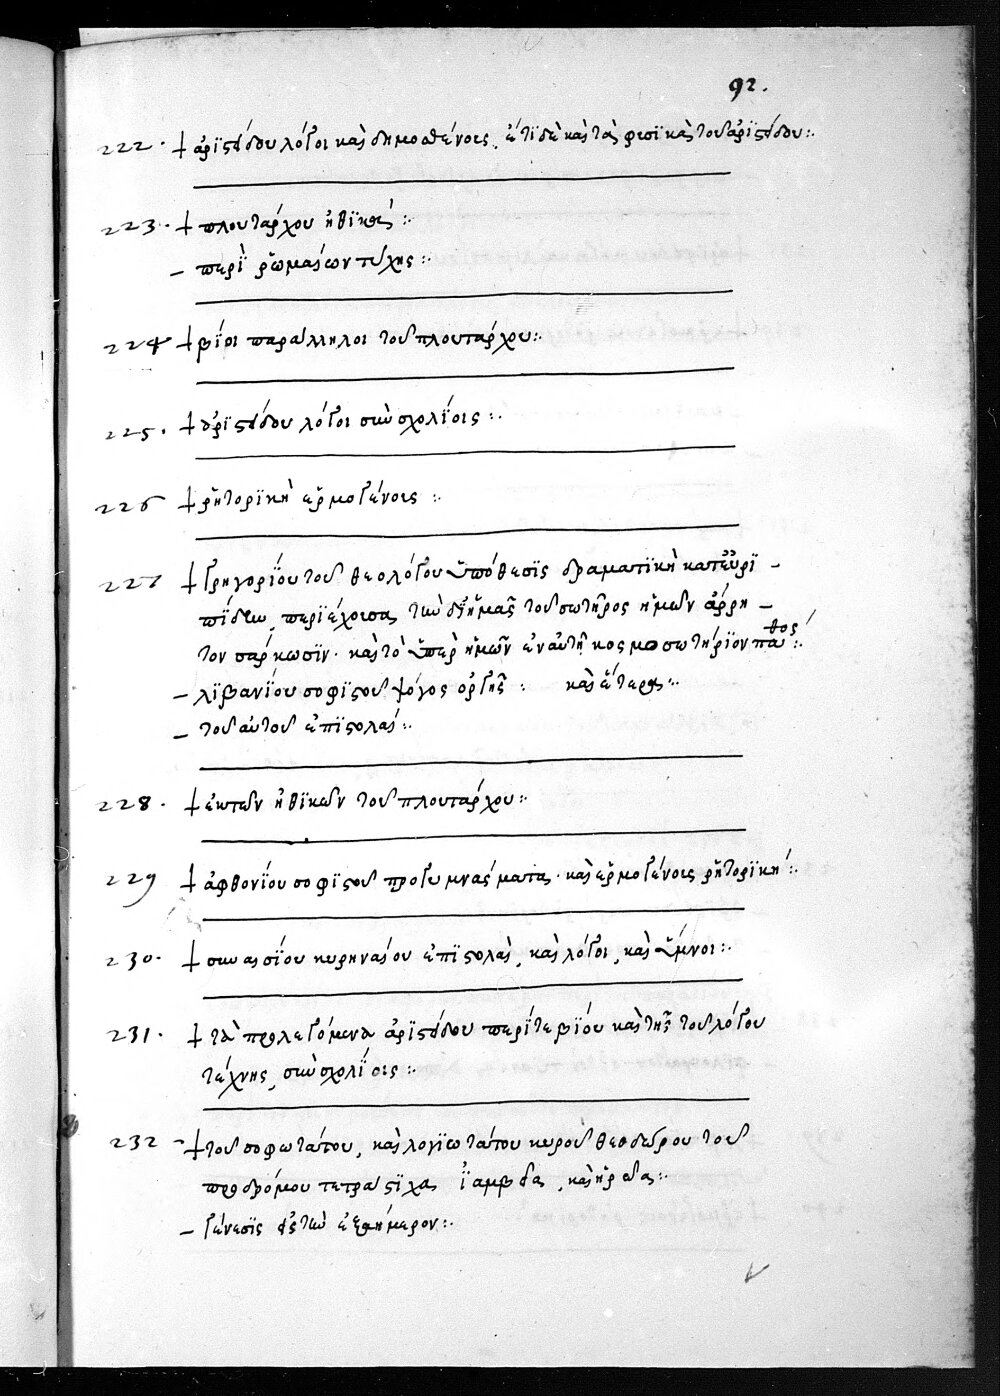 92.
222. + ἀρϊστείδου λόγοι καὶ δημοσθένους, ἔτϊ δὲ καὶ τὰ τοῦ ἀρϊστείδου:.
223. + πλουτάρχου ἠθϊκὰ:.
– περὶ ῥωμαίων τύχης:.
224 + βίοι παράλληλοι τοῦ πλουτάρχου:.
225. + ἀρϊστείδου λόγοι σὺν σχολίοις:.
226 + ῥητορϊκὴ ἑρμογένους :.
227 + γρηγορίου τοῦ θεολόγου ὑπόθεσϊς δραματϊκὴ κατ' εὐρϊ –
πίδην, περϊέχουσα, τὴν δι' ἡμᾶς τοῦ σωτῆρος ἡμῶν ἄρρη –
τον σάρκωσϊν· καὶ τὸ ὑπὲρ ἡμῶν ἐν αὐτῇ κοσμοσωτήρϊον πάθος:.
– λϊβανίου σοφϊστοῦ ψόγος ὀργῆς : καὶ ἕτερα:.
– τοῦ αὐτοῦ ἐπϊστολαί:.
228. + ἐκ τῶν ἠθϊκῶν τοῦ πλουτάρχου:.
229 + ἀφθονίου σοφϊστοῦ προγυμνάσματα· καὶ ἑρμογένους ῥητορϊκή:.
230. + συνεσίου κυρηναίου ἐπϊστολαὶ, καὶ λόγοι, καὶ ὕμνοι:.
231. + τὰ προλεγόμενα ἀρϊστείδου περί τε βίου καὶ τῆς τοῦ λόγου
τέχνης, σὺν σχολίοις:.
232 – + τοῦ σοφωτάτου, καὶ λογϊωτάτου κυροῦ θεοδώρου τοῦ
προδρόμου τετράστϊχα, ἰαμβεῖα, καὶ ἡρῶα:.
– γένεσϊς εἰς τὴν ἑξαήμερον:.